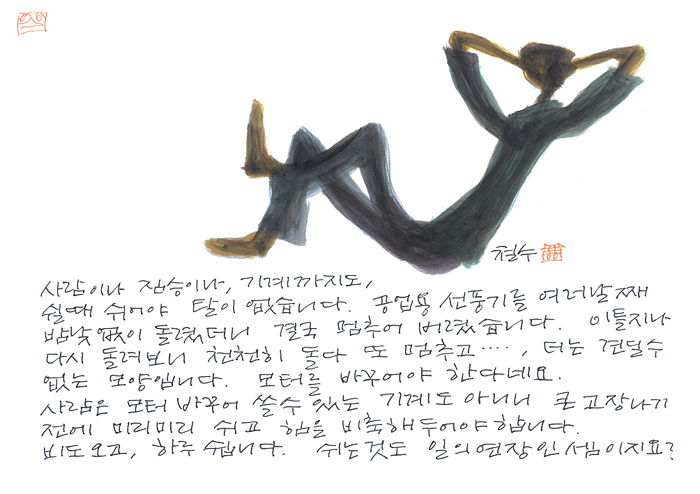 철수
사람이나 짐승이나, 기계까지도,
쉴때 쉬어야 탈이 없습니다. 공업용 선풍기를 여러날째
밤낮 없이 돌렸더니 결국 멈추어 버렸습니다. 이틀지나
다시 돌려보니 천천히 돌다 또 멈추고····, 더는 견딜수
없는 모양입니다. 모터를 바꾸어야 한다네요.
사람은 모터 바꾸어 쓸수 있는 기계도 아니니 큰 고장나기
전에 미리미리 쉬고 힘을 비축해 두어야 합니다.
비도 오고, 하루 쉽니다. 쉬는것도 일의 연장인 셈이지요?